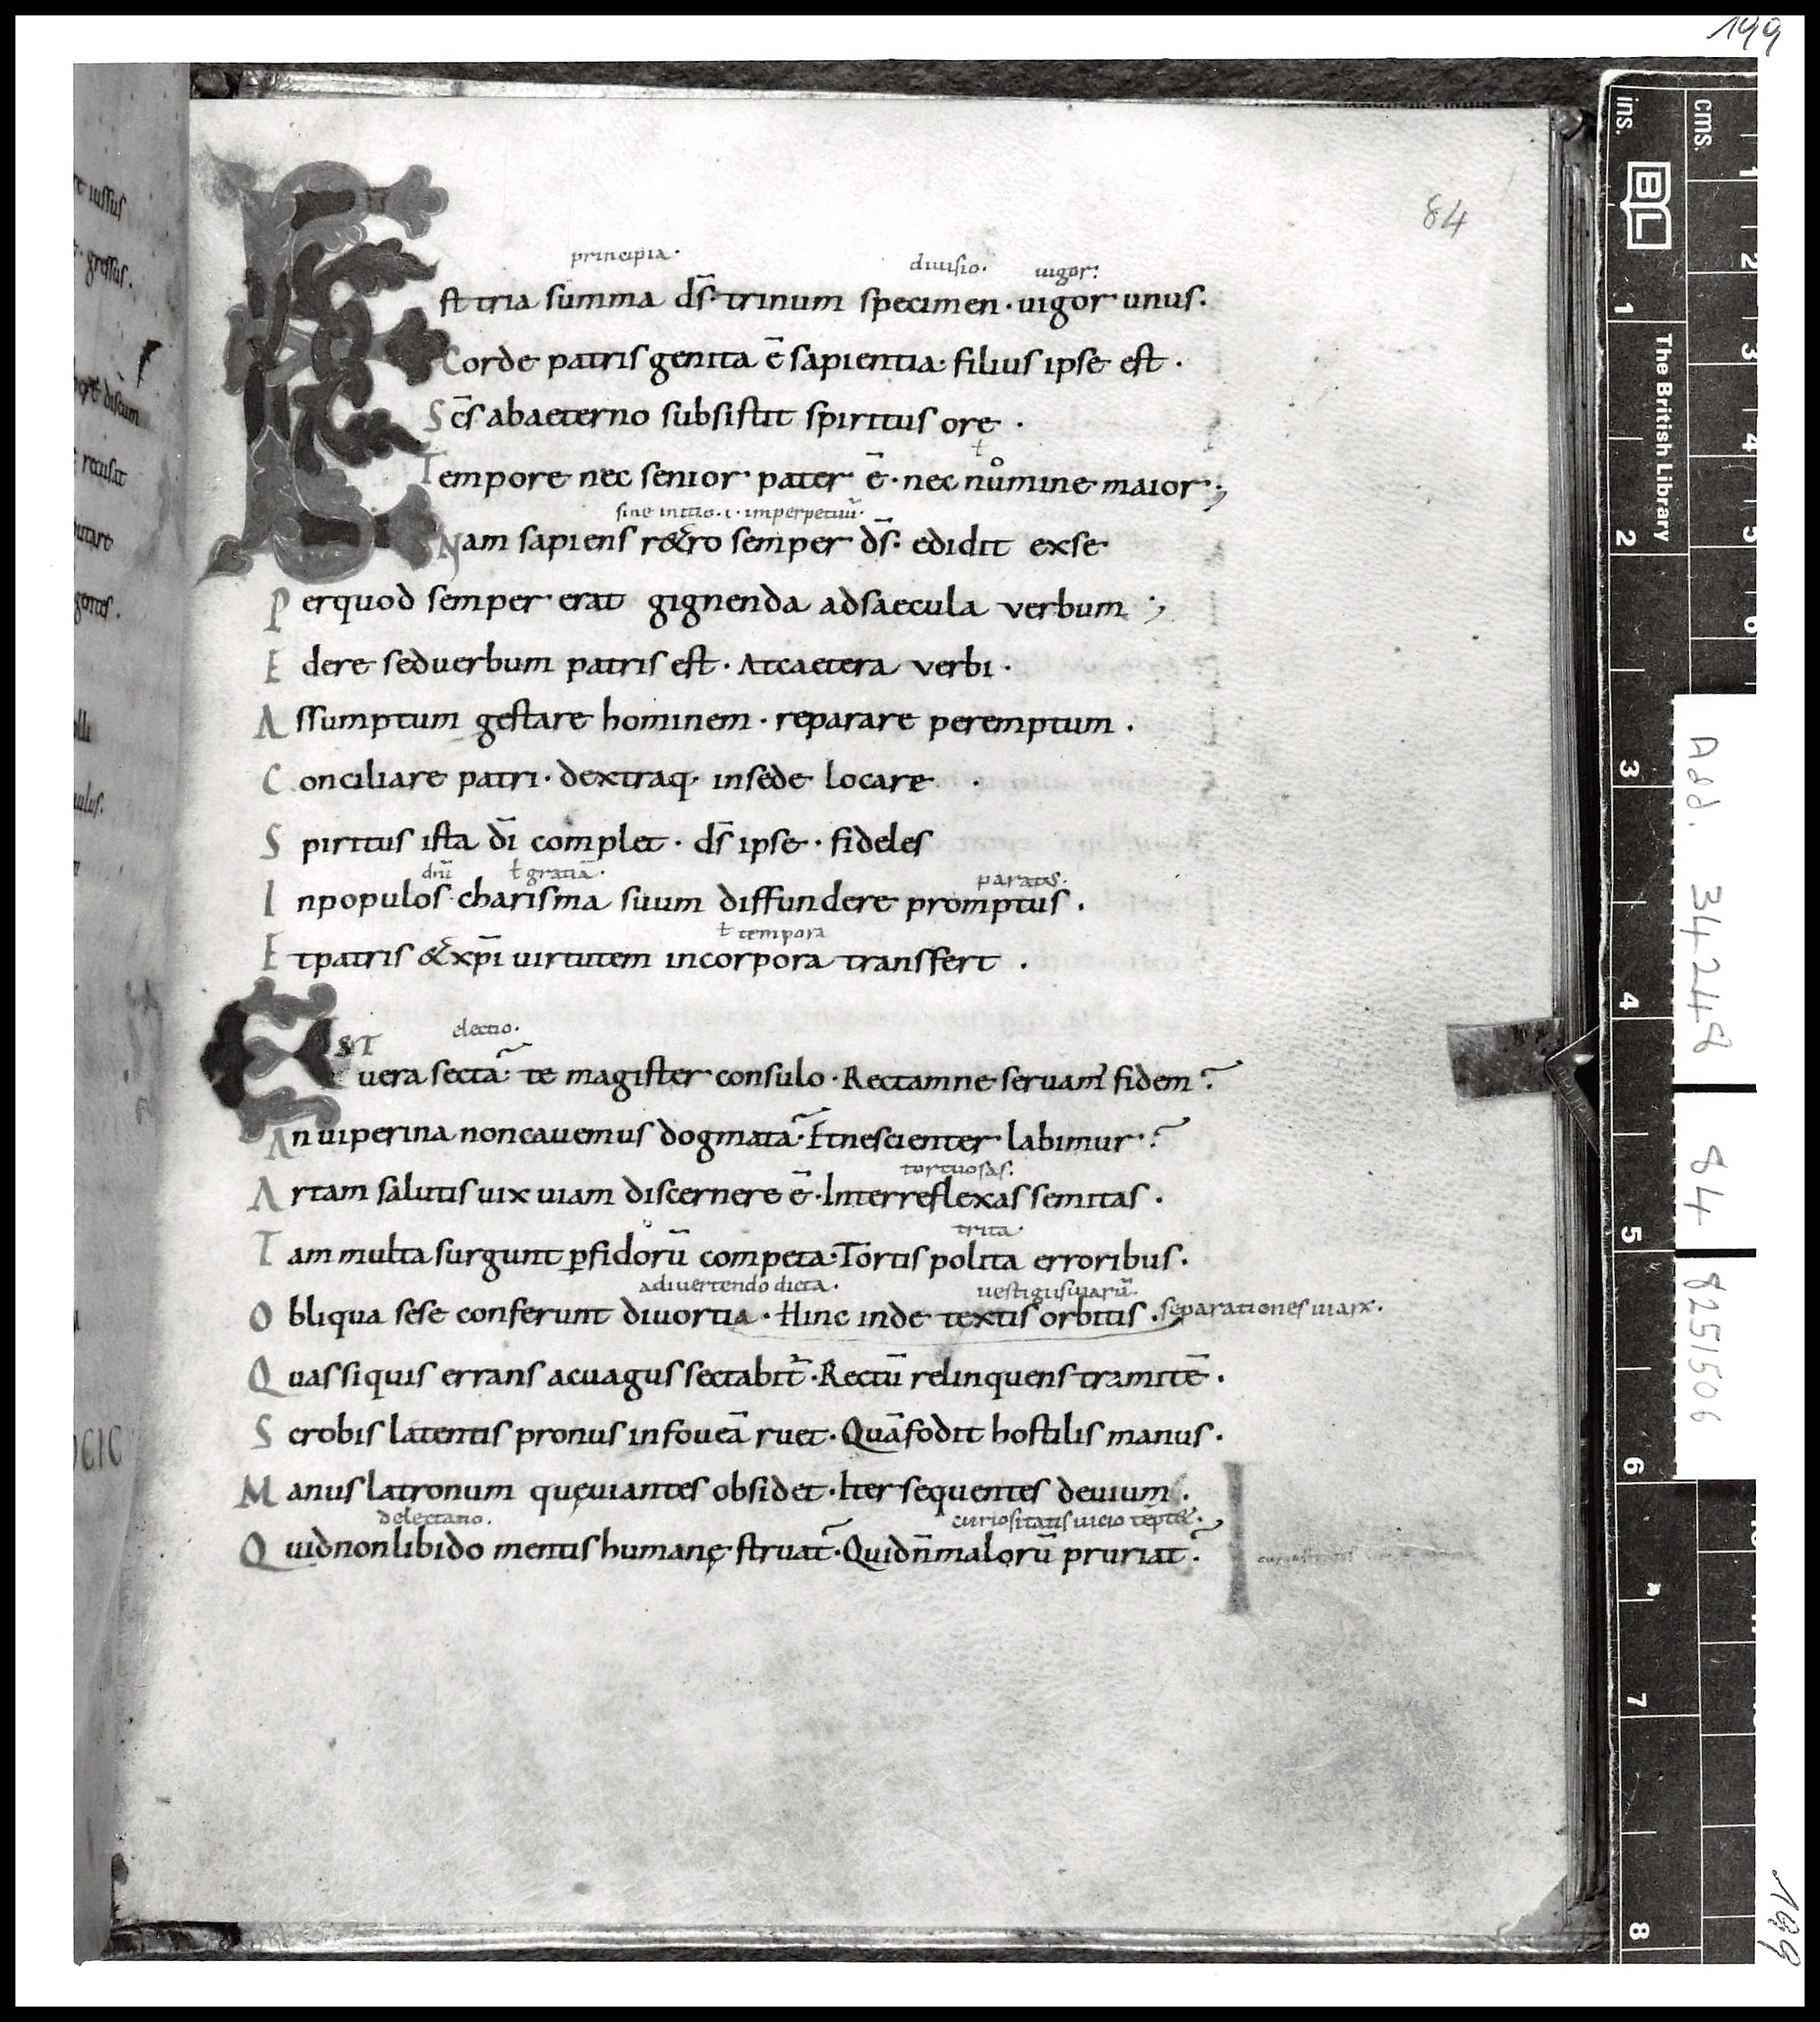 199
84
principia · diuisio · uigor :
Est tria summa ds̄ · trinum specimen · uigor unus .
Corde patris genita ē sapientia · filius ipse est .
Sc̄s abaeterno subsistit spiritus ore .
ƚ o
Tempore nec senior pater ē · nec numine maior ;
sine initio · i · imperpetuū
Nam sapiens r&ro semper ds̄ · edidit exse
Perquod semper erat gignenda adsaecula verbum ;
Edere seduerbum patris est · Atcaetera verbi ·
Assumptum gestare hominem · reparare peremptum .
Conciliare patri · dextraq· insede locare .
Spiritus ista dī complet · ds̄ ipse · fideles
ƚ gratiā · paratus .
Inpopulos charisma suum diffundere promptus .
ƚ tempora
Etpatris &xp̄i uirtutem incorpora transfert .
electio .
EST uera secta : te magister consulo · Rectamne seruam' fidem ?
An uiperina noncauemus dogmata · Etnescienter labimur ?
tortuosas .
Artam salutis uix uiam discernere ē · Interreflexas semitas .
trita ·
Tam multa surgunt ꝑfidorū competa · Tortis polita erroribus .
adiuertendo dicta . uestigiisuiarū
Obliqua sese conferunt diuortia · Hinc inde textis orbitis . separationes uiaꝝ .
Quassiquis errans acuagus sectabit̄ · Rectū relinquens tramitē .
Scrobis latentis pronus infoueā ruet · Quāfodit hostilis manus .
Manus latronum quęuiantes obsidet · Iter sequentes deuium .
delectatio . curiositatis uicio
Quidnonlibido mentis humanę struat · Quidn̄malorū pruriat ?
ins.
cms.
BL
The British Library
1
2
3
4
5
6
7
8
1
2
3
4
5
6
Add. 34248
84
8251506
199